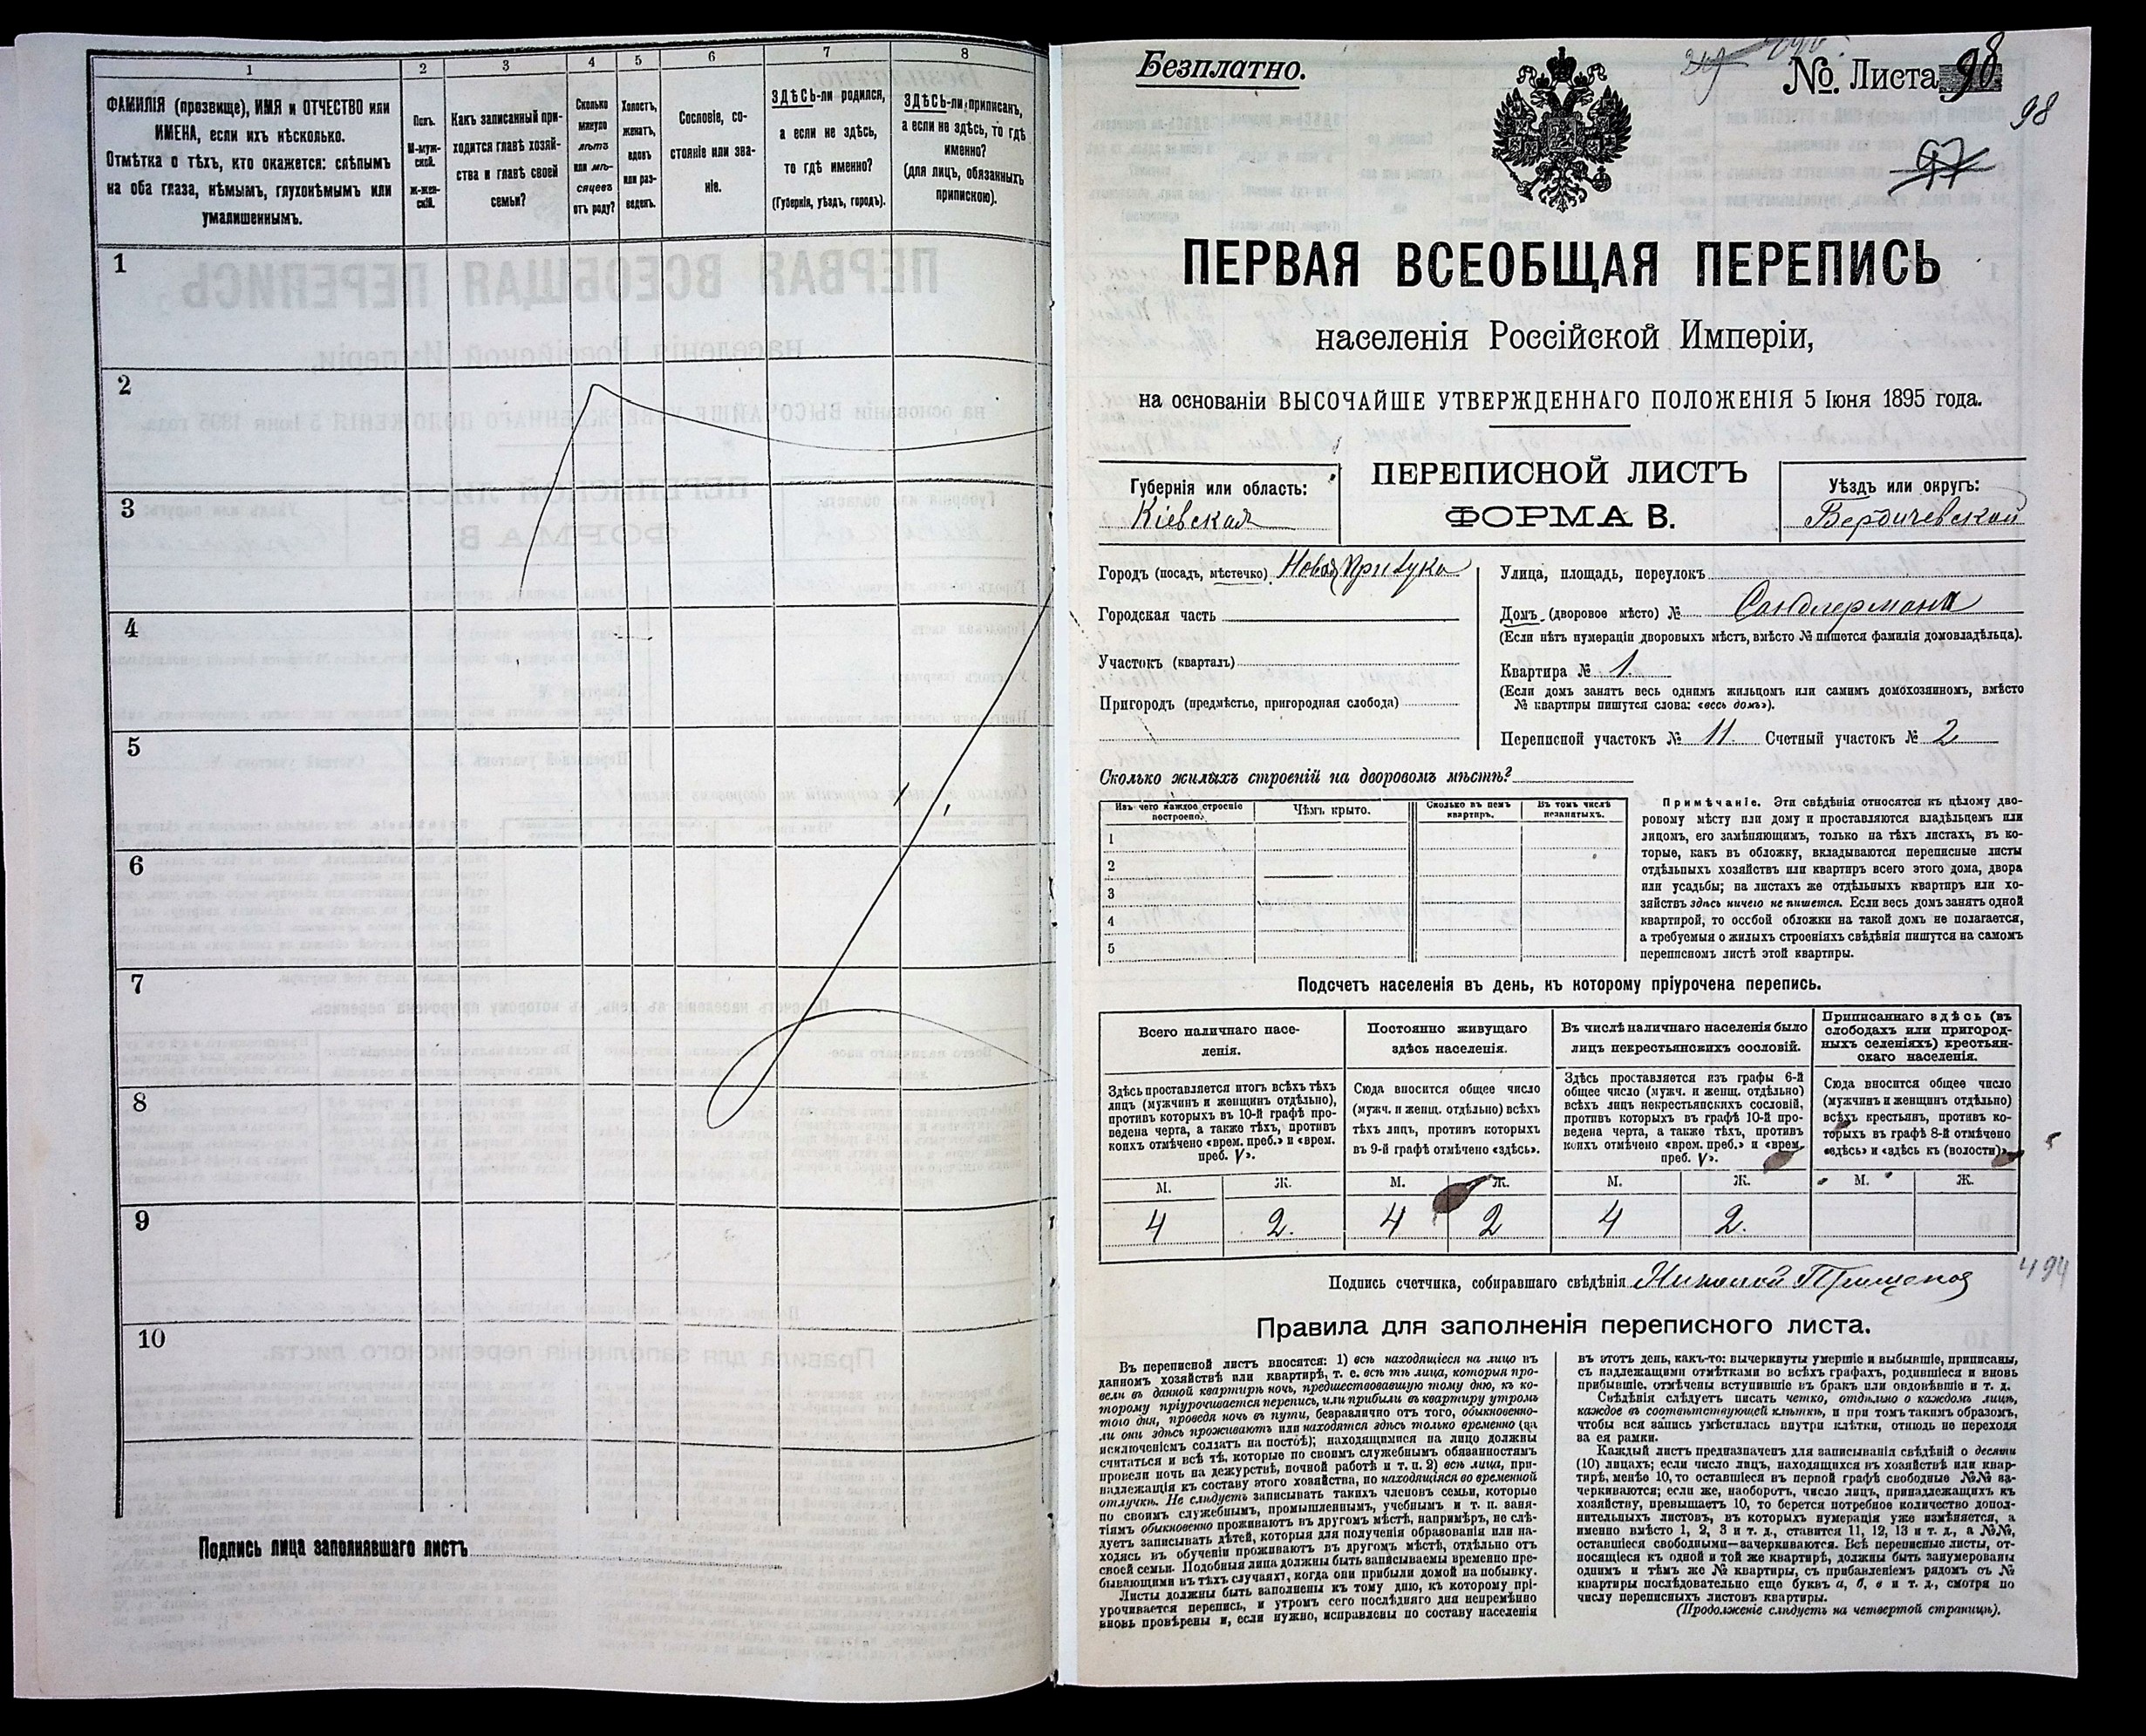 1 2 3 4 5 6 7 8
ФАМИЛІЯ (прозвище), ИМЯ и ОТЧЕСТВО или
ИМЕНА, если ихъ нѣсколько.
Отмѣтка о тѣхъ, кто окажется: слѣпымъ
на оба глаза, нѣмымъ, глухонѣмымъ или
умалишеннымъ.
Полъ.
М-муж-
ской.
Ж-жен-
скій.
Какъ записанный при-
ходится главѣ хозяй-
ства и главѣ своей
семьи?
Сколько
минуло
лѣтъ
или мѣ-
сяцевъ
отъ роду?
Холостъ,
женатъ,
вдовъ
или раз-
веденъ.
Сословіе, со-
стояніе или зва-
ніе.
ЗДѢСЬ-ли родился,
а если не здѣсь,
то гдѣ именно?
(Губернія, уѣздъ, городъ).
ЗДѢСЬ-ли приписанъ,
а если не здѣсь, то гдѣ
именно?
(для лицъ, обязанныхъ
припискою).
1
2
3
4
5
6
7
8
9
10
Подпись лица заполнявшаго листъ
Безплатно.
№. Листа 98
98
97
ПЕРВАЯ ВСЕОБЩАЯ ПЕРЕПИСЬ
населенія Россійской Имперіи,
на основаніи ВЫСОЧАЙШЕ УТВЕРЖДЕННАГО ПОЛОЖЕНІЯ 5 Іюня 1895 года.
Губернія или область:
Кіевская
ПЕРЕПИСНОЙ ЛИСТЪ
ФОРМА В.
Уѣздъ или округъ:
Бердичевской
Городъ (посадъ, мѣстечко) Новая Прилука
Городская часть
Участокъ (кварталъ)
Пригородъ (предмѣстье, пригородная слобода)
Улица, площадь, переулокъ
Домъ (дворовое мѣсто) № Сандлермана
(Если нѣтъ нумераціи дворовыхъ мѣстъ, вмѣсто № пишется фамилія домовладѣльца).
Квартира № 1
(Если домъ занятъ весь однимъ жильцомъ или самимъ домохозяиномъ, вмѣсто
№ квартиры пишутся слова: «весь домъ»).
Переписной участокъ № 11. Счетный участокъ № 2
Сколько жилыхъ строеній на дворовомъ мѣстѣ?
Изъ чего каждое строеніе
построено.
Чѣмъ крыто.
Сколько въ немъ
квартиръ.
Въ томъ числѣ
незанятыхъ.
1
2
3
4
5
Примѣчаніе. Эти свѣдѣнія относятся къ цѣлому дво-
ровому мѣсту или дому и проставляются владѣльцемъ или
лицомъ, его замѣняющимъ, только на тѣхъ листахъ, въ ко-
торые, какъ въ обложку, вкладываются переписные листы
отдѣльныхъ хозяйствъ или квартиръ всего этого дома, двора
или усадьбы; на листахъ же отдѣльныхъ квартиръ или хо-
зяйствъ здѣсь ничего не пишется. Если весь домъ занятъ одной
квартирой, то особой обложки на такой домъ не полагается,
а требуемыя о жилыхъ строеніяхъ свѣдѣнія пишутся на самомъ
переписномъ листѣ этой квартиры.
Подсчетъ населенія въ день, къ которому пріурочена перепись.
Всего наличнаго насе-
ленія.
Постоянно живущаго
здѣсь населенія.
Въ числѣ наличнаго населенія было
лицъ некрестьянскихъ сословій.
Приписаннаго здѣсь (въ
слободахъ или пригород-
ныхъ селеніяхъ) крестьян-
скаго населенія.
Здѣсь проставляется итогъ всѣхъ тѣхъ
лицъ (мужчинъ и женщинъ отдѣльно),
противъ которыхъ въ 10-й графѣ про-
ведена черта, а также тѣхъ, противъ
коихъ отмѣчено «врем. преб.» и «врем.
преб. V».
Сюда вносится общее число
(мужч. и женщ. отдѣльно) всѣхъ
тѣхъ лицъ, противъ которыхъ
въ 9-й графѣ отмѣчено «здѣсь».
Здѣсь проставляется изъ графы 6-й
общее число (мужч. и женщ. отдѣльно)
всѣхъ лицъ некрестьянскихъ сословій,
противъ которыхъ въ графѣ 10-й про-
ведена черта, а также тѣхъ, противъ
коихъ отмѣчено «врем. преб.» и «врем.
преб. V».
Сюда вносится общее число
(мужчинъ и женщинъ отдѣльно)
всѣхъ крестьянъ, противъ ко-
торыхъ въ графѣ 8-й отмѣчено
«здѣсь» и «здѣсь къ (волости)»
М. Ж. М. Ж. М. Ж. М. Ж.
4 2. 4 2 4 2.
494
Подпись счетчика, собиравшаго свѣдѣнія
Правила для заполненія переписного листа.
Въ переписной листъ вносятся: 1) всѣ находящіеся на лицо въ
данномъ хозяйствѣ или квартирѣ, т. е. всѣ тѣ лица, которыя про-
вели въ данной квартирѣ ночь, предшествовавшую тому дню, къ ко-
торому пріурочивается перепись, или прибыли въ квартиру утромъ
того дня, проведя ночь въ пути, безразлично отъ того, обыкновенно-
ли они здѣсь проживаютъ или находятся здѣсь только временно (за
исключеніемъ солдатъ на постоѣ); находящимися на лицо должны
считаться и всѣ тѣ, которые по своимъ служебнымъ обязанностямъ
провели ночь на дежурствѣ, ночной работѣ и т. п. 2) всѣ лица, при-
надлежащія къ составу этого хозяйства, но находящіяся во временной
отлучкѣ. Не слѣдуетъ записывать такихъ членовъ семьи, которые
по своимъ служебнымъ, промышленнымъ, учебнымъ и т. п. заня-
тіямъ обыкновенно проживаютъ въ другомъ мѣстѣ, напримѣръ, не слѣ-
дуетъ записывать дѣтей, которыя для полученія образованія или на-
ходясь въ обученіи проживаютъ въ другомъ мѣстѣ, отдѣльно отъ
своей семьи. Подобныя лица должны быть записываемы временно пре-
бывающими въ тѣхъ случаяхъ, когда они прибыли домой на побывку.
Листы должны быть заполнены къ тому дню, къ которому прі-
урочивается перепись, и утромъ сего послѣдняго дня непремѣнно
вновь провѣрены и, если нужно, исправлены по составу населенія
въ этотъ день, какъ-то: вычеркнуты умершіе и выбывшіе, приписаны,
съ надлежащими отмѣтками во всѣхъ графахъ, родившіеся и вновь
прибывшіе, отмѣчены вступившіе въ бракъ или овдовѣвшіе и т. д.
Свѣдѣнія слѣдуетъ писать четко, отдѣльно о каждомъ лицѣ,
каждое въ соотвѣтствующей клѣткѣ, и при томъ такимъ образомъ,
чтобы вся запись умѣстилась внутри клѣтки, отнюдь не переходя
за ея рамки.
Каждый листъ предназначенъ для записыванія свѣдѣній о десяти
(10) лицахъ; если число лицъ, находящихся въ хозяйствѣ или квар-
тирѣ, менѣе 10, то оставшіеся въ первой графѣ свободные №№ за-
черкиваются; если же, наоборотъ, число лицъ, принадлежащихъ къ
хозяйству, превышаетъ 10, то берется потребное количество допол-
нительныхъ листовъ, въ которыхъ нумерація уже измѣняется, а
именно вмѣсто 1, 2, 3 и т. д., ставится 11, 12, 13 и т. д., а №№,
оставшіеся свободными—зачеркиваются. Всѣ переписные листы, от-
носящіеся къ одной и той же квартирѣ, должны быть занумерованы
однимъ и тѣмъ же № квартиры, съ прибавленіемъ рядомъ съ №
квартиры послѣдовательно еще буквъ а, б, в и т. д., смотря по
числу переписныхъ листовъ квартиры.
(Продолженіе слѣдуетъ на четвертой страницѣ).